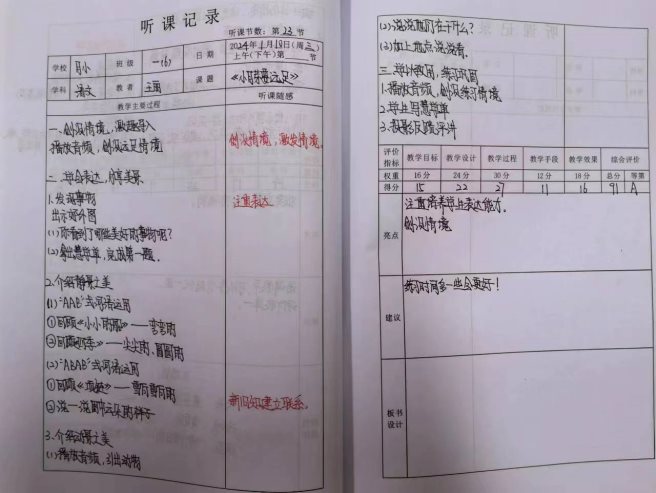 听课记录
听课节数：第23节
学校 月小 班级 一(6) 日期 2024年1月18日(周三)
上午(下午)第 节
学科 语文 教者 王丽 课题
教学主要过程 听课随感
一、创设情境，激趣导入
播放音频，创设远足情境 创设情境，激发情境。
二、学会表达，分享美景
1.发现事物 注重表达
出示好分图
(1)你看到了哪些美好的事物呢？
(2)拿出慧学单，完成第一题。
2.介绍静景之美
(1)“AAB”式词语运用
①回顾《小小的船》——弯弯的
——尖尖的，圆圆的
(2)“ABAB”式词语运用
①回顾《项链》——雪白雪白的
②说一说图中云朵的样子 新旧知建立联系。
3.介绍动景之美
(1)播放音频，引出动物
(2)说说它们在干什么？
(3)加上地点说说看。
1.播放音频，创设练习情境
2.学生写慧学单
3.投影反馈评讲
评价指标 教学目标 教学设计 教学过程 教学手段 教学效果 综合评价
权重 16分 24分 30分 12分 18分 总分 等第
得分 15 22 27 11 16 91 A
亮点 注重培养学生表达能力。
创设情境
建议 练习时间多一些会更好！
板书设计